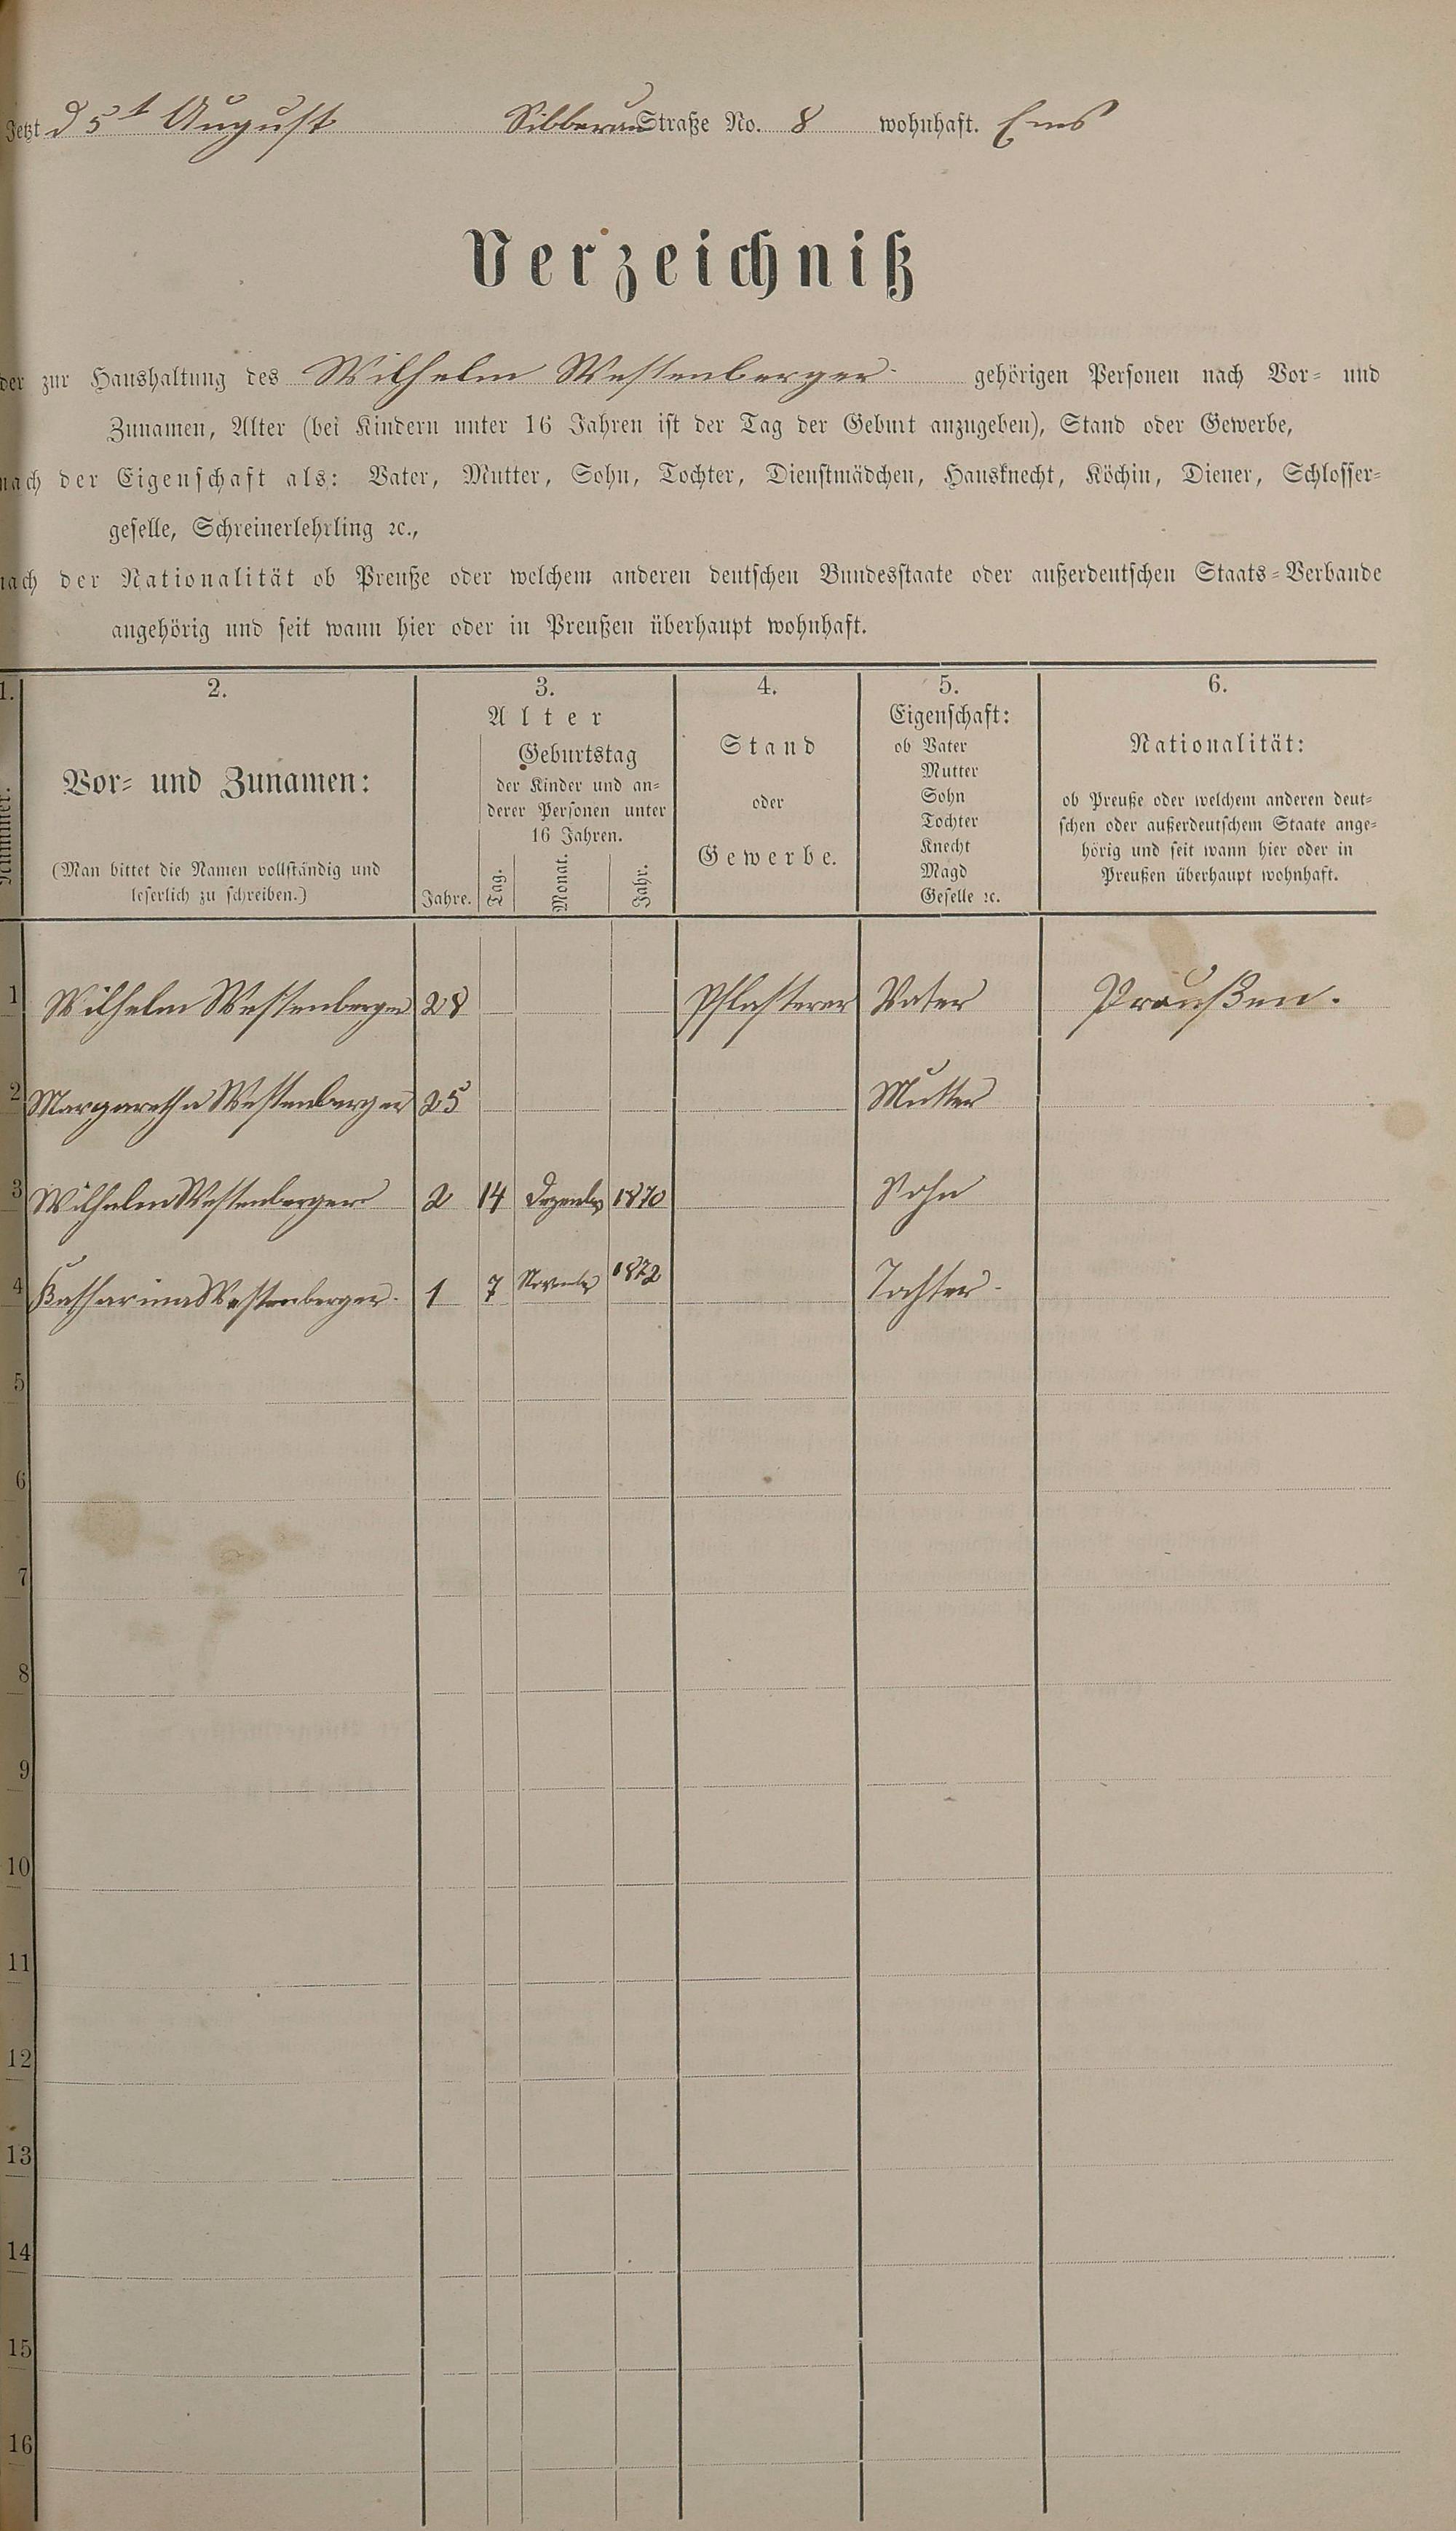 Jetzt d 5t August Silberau Straße No. 8 wohnhaft. Ems
Verzeichniß
der zur Haushaltung des Wilhelm Westenberger gehörigen Personen nach Vor- und
Zunamen, Alter (bei Kindern unter 16 Jahren ist der Tag der Geburt anzugeben), Stand oder Gewerbe,
nach der Eigenschaft als: Vater, Mutter, Sohn, Tochter, Dienstmädchen, Hausknecht, Köchin, Diener, Schlosser-
geselle, Schreinerlehrling ꝛc.,
nach der Nationalität ob Preuße oder welchem anderen deutschen Bundesstaate oder außerdeutschen Staats-Verbande
angehörig und seit wann hier oder in Preußen überhaupt wohnhaft.
1. 2. 3. 4. 5. 6.
Nummer.
Vor- und Zunamen:
(Man bittet die Namen vollständig und
leserlich zu schreiben.)
Alter
Jahre.
Geburtstag
der Kinder und an-
derer Personen unter
16 Jahren.
Tag. Monat. Jahr.
Stand
oder
Gewerbe.
Eigenschaft:
ob Vater
Mutter
Sohn
Tochter
Knecht
Magd
Geselle ꝛc.
Nationalität:
ob Preuße oder welchem anderen deut-
schen oder außerdeutschem Staate ange-
hörig und seit wann hier oder in
Preußen überhaupt wohnhaft.
1 Wilhelm Westenberger 28 Pflasterer Vater Preußen.
2 Margaretha Westenberger 25 Mutter
3 Wilhelm Westenberger 2 14 Dezember 1870 Sohn
4 Katharina Westenberger 1 7 November 1872 Tochter
5
6
7
8
9
10
11
12
13
14
15
16